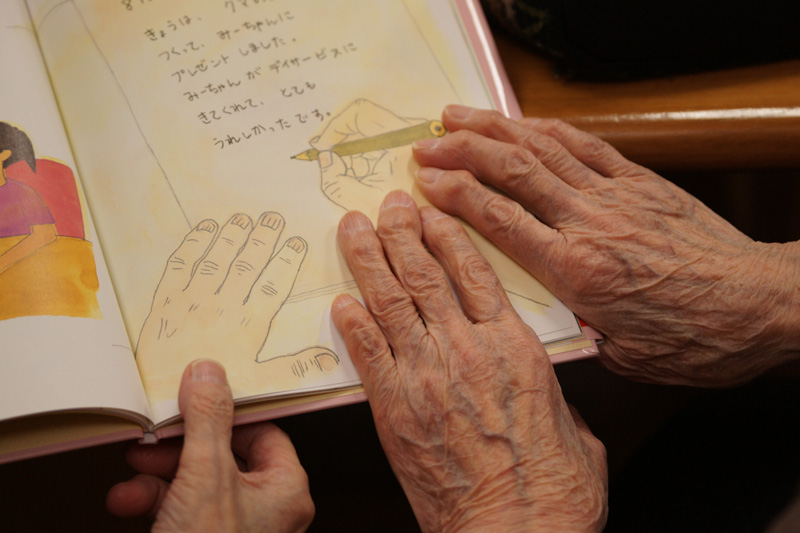 きょうは、クマの
つくって、みーちゃんに
プレゼントしました。
みーちゃんがデイサービスに
きてくれて、とても
うれしかったです。